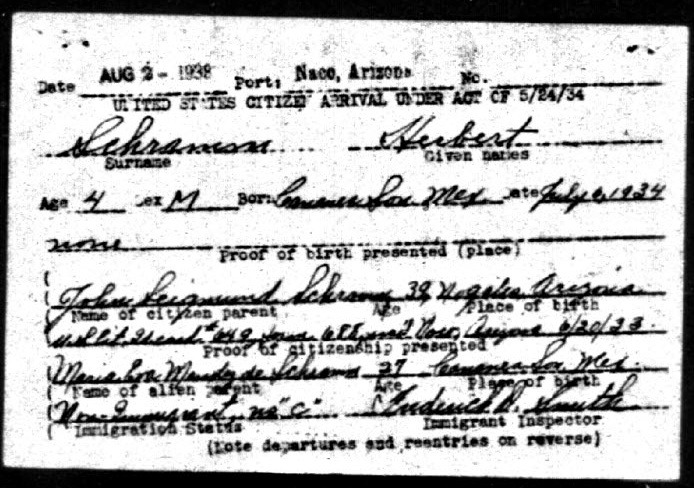 Date AUG 2 - 1938 Port: Naco, Arizona No.
UNITED STATES CITIZEN ARRIVAL UNDER ACT OF 5/24/34
Schramm Herbert
Surname Given names
Age 4 Sex M Born Cananea Son Mex Date July 6, 1934
none
Proof of birth presented (place)
John Seigmund Schramm 39 Nogales Arizona
Name of citizen parent Age Place of birth
Naco, Arizona 6/20/33
Proof of citizenship presented
Maria Eva Mendez de Schramm 27 Cananea Son Mex.
Name of alien parent Age Place of birth
Non-Immigrant "C" Frederick D. Smith
Immigration Status Immigrant Inspector
(Note departures and reentries on reverse)